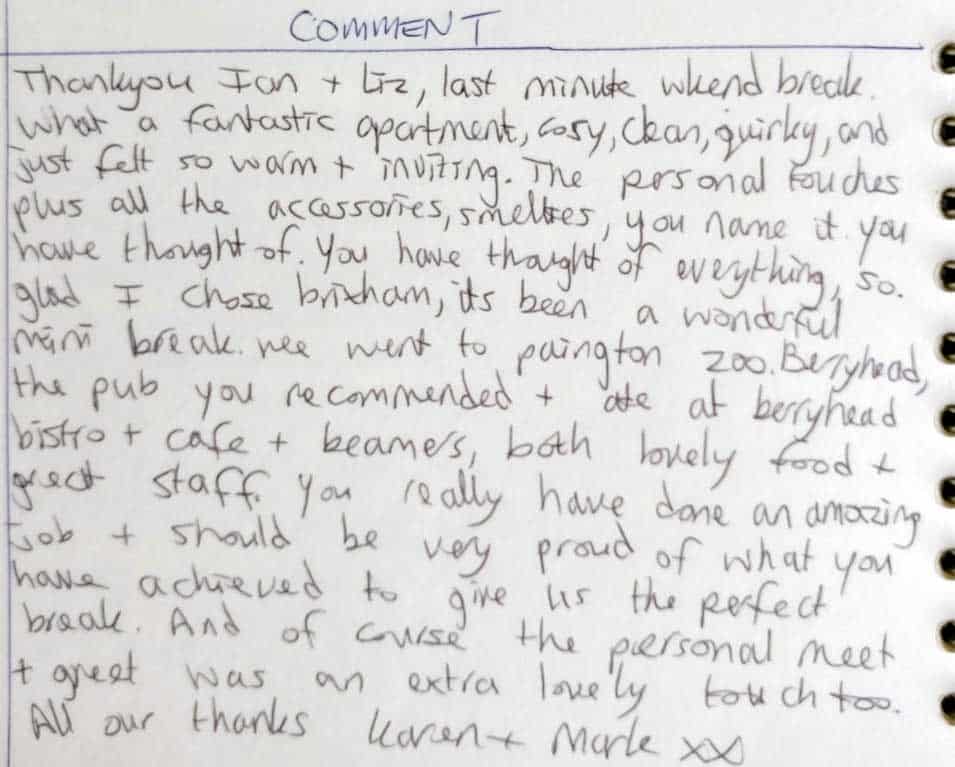 COMMENT
Thankyou Ian + Liz, last minute wkend break.
What a fantastic apartment, cosy, clean, quirky, and
just felt so warm + inviting. The personal touches
plus all the accessories, smellies, you name it you
have thought of. You have thought of everything, so.
glad I chose brixham, its been a wonderful
mini break. wee went to paington zoo. Berryhead,
the pub you recommended + ate at berryhead
bistro + cafe + beamers, both lovely food +
great staff. You really have done an amazing
job + should be very proud of what you
have achieved to give us the perfect
break. And of course the personal meet
+ greet was an extra lovely touch too.
All our thanks Karen + Mark xx